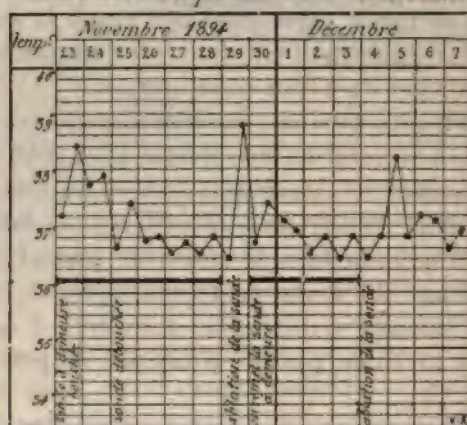 Novembre 1894 Décembre
Temp.
23 24 25 26 27 28 29 30 1 2 3 4 5 6 7
40
39
38
37
36
35
34
sonde à demeure
bouchée
sonde débouchée
ablation de la sonde
on remet la sonde
à demeure
ablation de la sonde